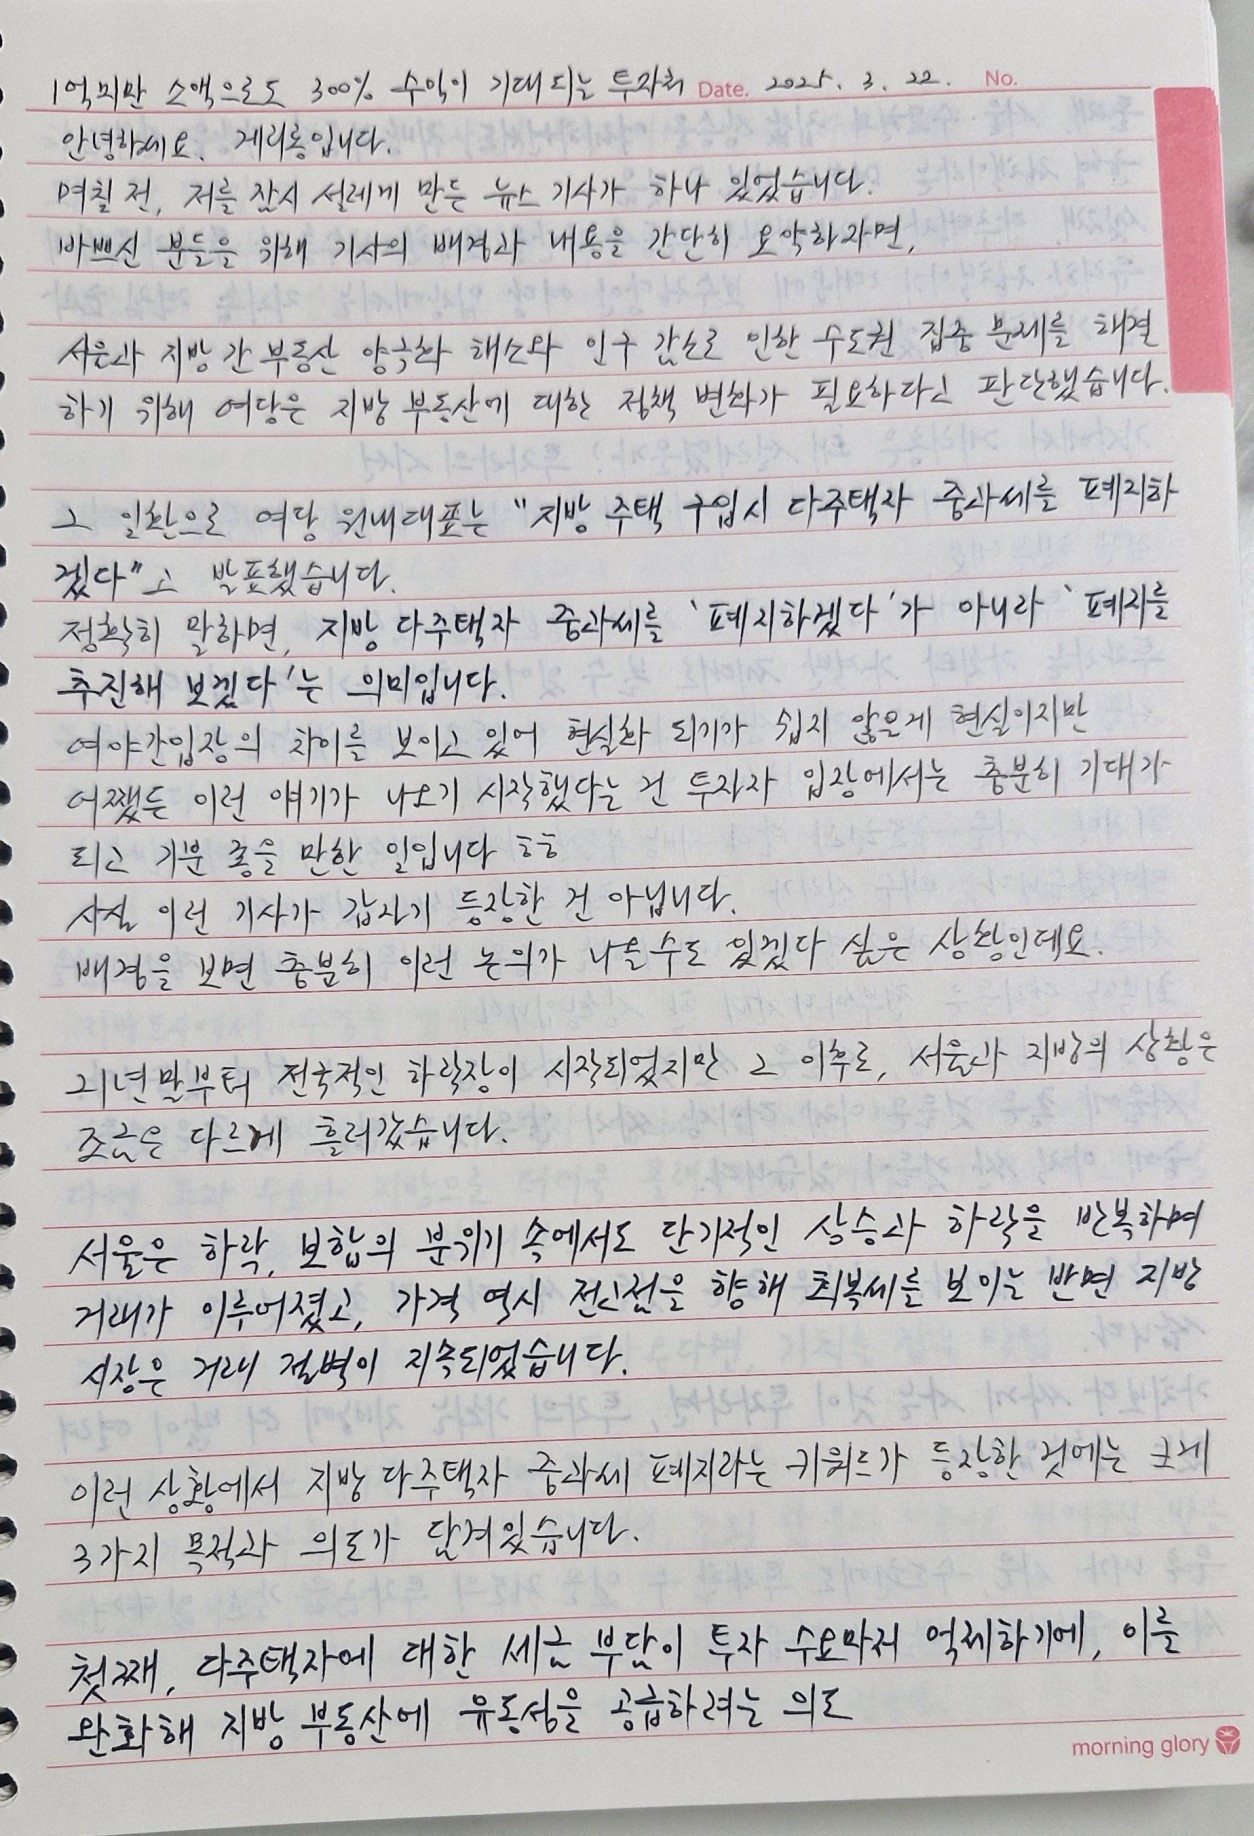 1억미만 소액으로도 300% 수익이 기대되는 투자처 Date. 2025. 3. 22. No.
안녕하세요. 게리롱입니다.
며칠 전, 저를 잠시 설레게 만든 뉴스 기사가 하나 있었습니다.
바쁘신 분들을 위해 기사의 배경과 내용을 간단히 요약하자면,
서울과 지방간 부동산 양극화 해소와 인구 감소로 인한 수도권 집중 문제를 해결
하기 위해 여당은 지방 부동산에 대한 정책 변화가 필요하다고 판단했습니다.
그 일환으로 여당 원내대표는 "지방 주택 구입시 다주택자 중과세를 폐지하
겠다"고 발표했습니다.
정확히 말하면, 지방 다주택자 중과세를 '폐지하겠다'가 아니라 '폐지를
추진해 보겠다'는 의미입니다.
여야간입장의 차이를 보이고 있어 현실화 되기가 쉽지 않은게 현실이지만
어쨌든 이런 얘기가 나오기 시작했다는 건 투자자 입장에서는 충분히 기대가
되고 기분 좋을 만한 일입니다 ㅎㅎ
사실 이런 기사가 갑자기 등장한 건 아닙니다.
배경을 보면 충분히 이런 논의가 나올수도 있겠다 싶은 상황인데요.
21년말부터 전국적인 하락장이 시작되었지만 그 이후로, 서울과 지방의 상황은
조금은 다르게 흘러갔습니다.
서울은 하락, 보합의 분위기 속에서도 단기적인 상승과 하락을 반복하며
거래가 이루어졌고, 가격 역시 전고점을 향해 회복세를 보이는 반면 지방
시장은 거래 절벽이 지속되었습니다.
이런 상황에서 지방 다주택자 중과세 폐지라는 키워드가 등장한 것에는 크게
3가지 목적과 의도가 담겨있습니다.
첫째, 다주택자에 대한 세금 부담이 투자 수요마저 억제하기에, 이를
완화해 지방 부동산에 유동성을 공급하려는 의도
morning glory